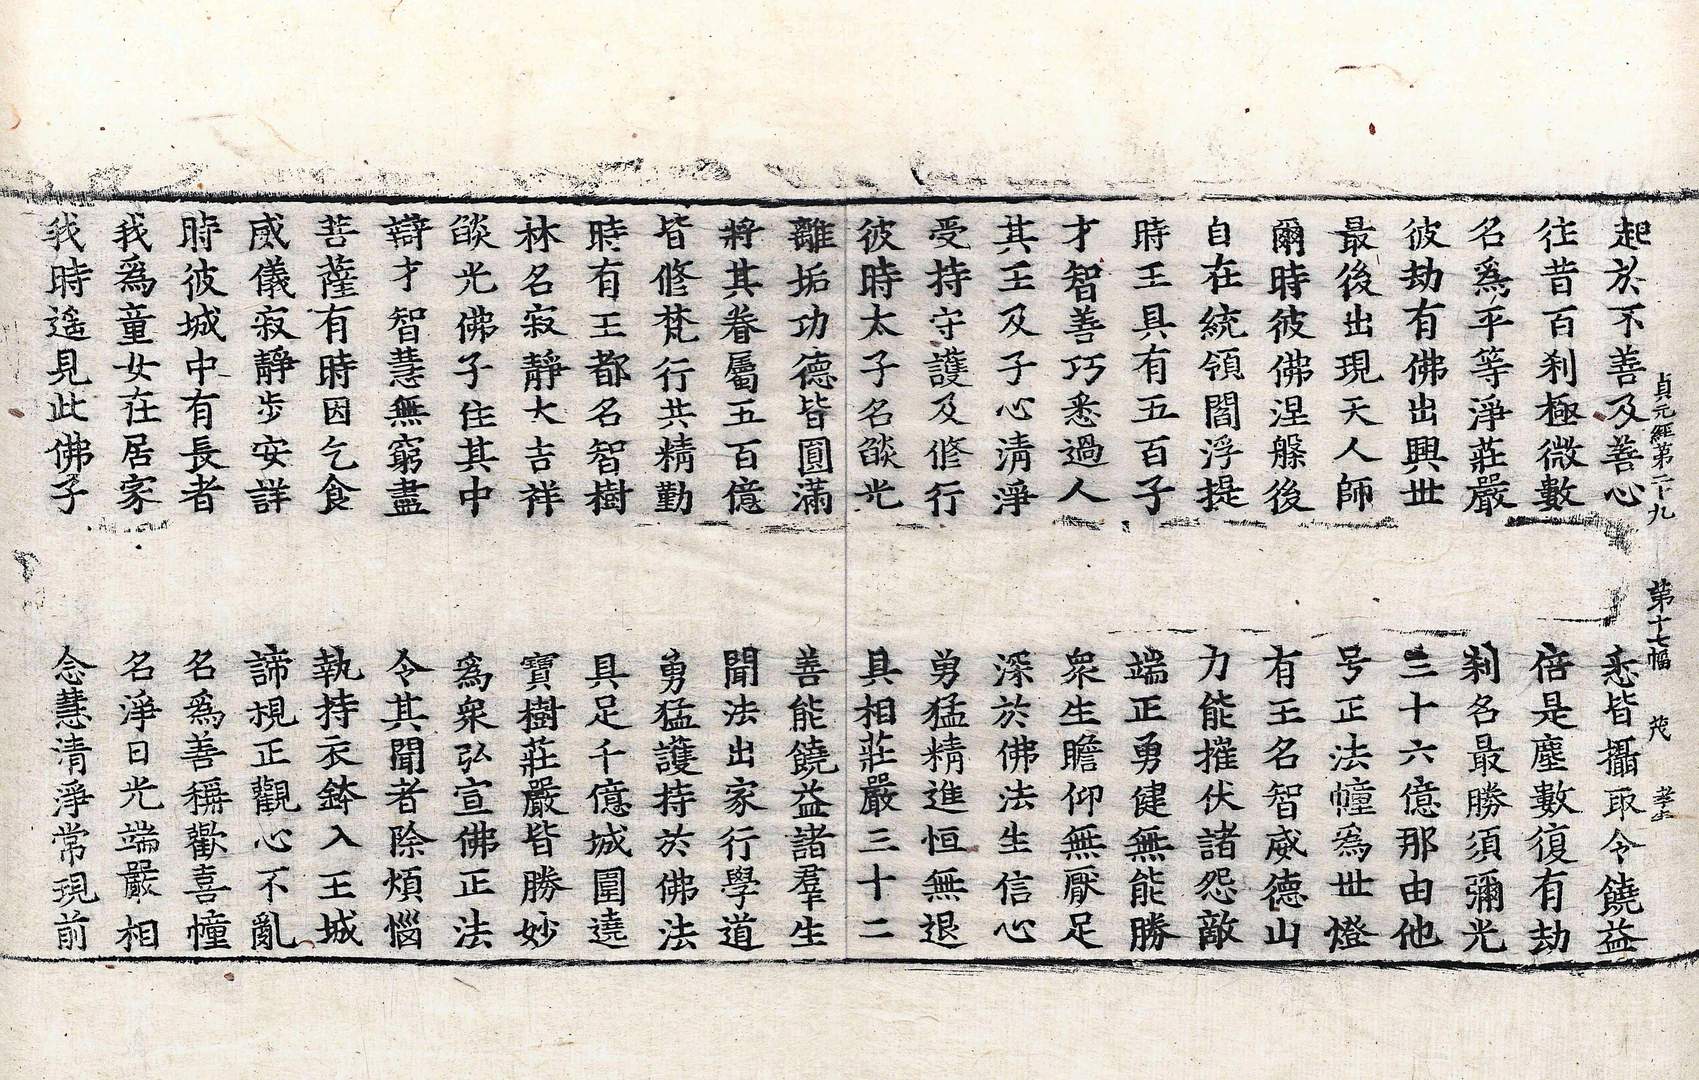 貞元經第二十九 第十七幅 茂
起於不善及善心 悉皆攝取令饒益
往昔百刹極微數 倍是塵數復有劫
名爲平等淨莊嚴 刹名最勝須彌光
彼劫有佛出興世 三十六億那由他
最後出現天人師 号正法幢為世燈
爾時彼佛涅槃後 有王名智威德山
自在統領閻浮提 力能摧伏諸怨敵
時王具有五百子 端正勇健無能勝
才智善巧悉過人 衆生瞻仰無厭足
其王及子心清淨 深於佛法生信心
受持守護及修行 勇猛精進恒無退
彼時太子名燄光 具相莊嚴三十二
離垢功德皆圓滿 善能饒益諸羣生
將其眷屬五百億 聞法出家行學道
皆修梵行共精勤 勇猛護持於佛法
時有王都名智樹 具足千億城圍遶
林名寂靜大吉祥 寶樹莊嚴皆勝妙
燄光佛子住其中 為衆弘宣佛正法
辯才智慧無窮盡 令其聞者除煩惱
菩薩有時因乞食 執持衣鉢入王城
威儀寂靜步安詳 諦視正觀心不亂
時彼城中有長者 名爲善稱歡喜幢
我爲童女在居家 名淨日光端嚴相
我時遥見此佛子 念慧清淨常現前